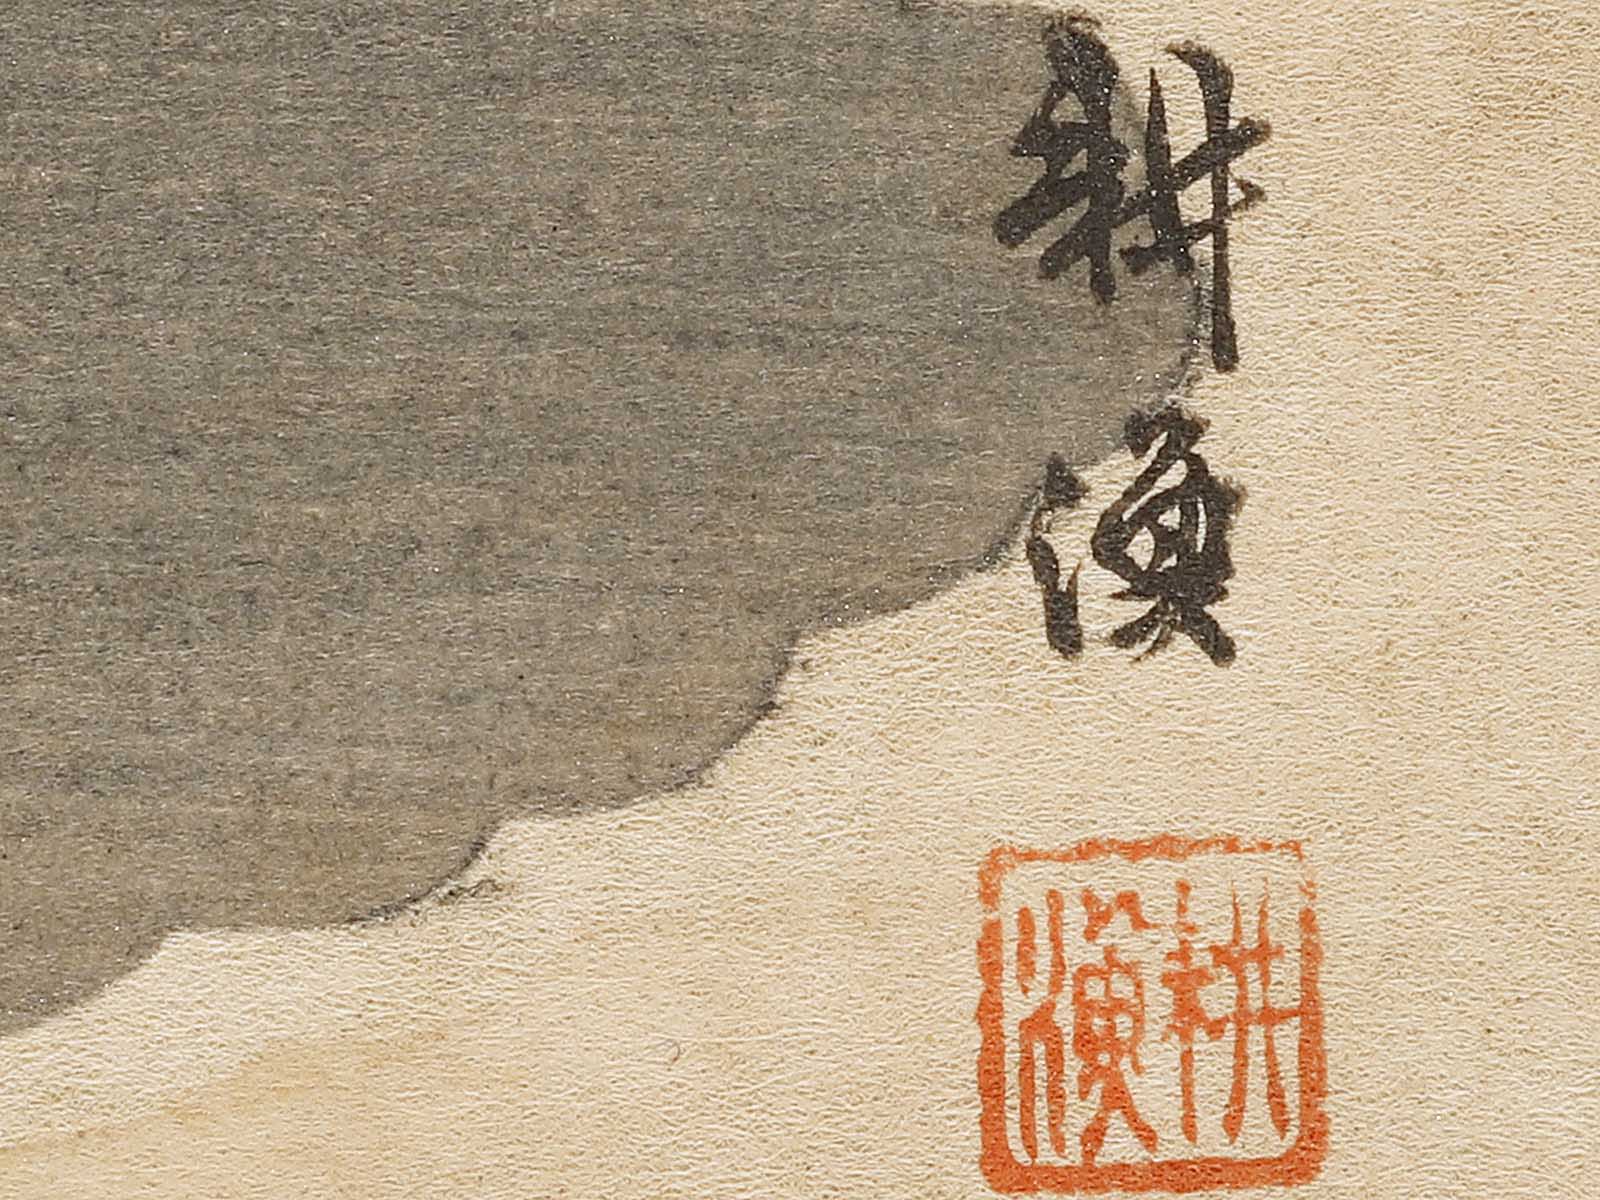 耕漁
耕漁